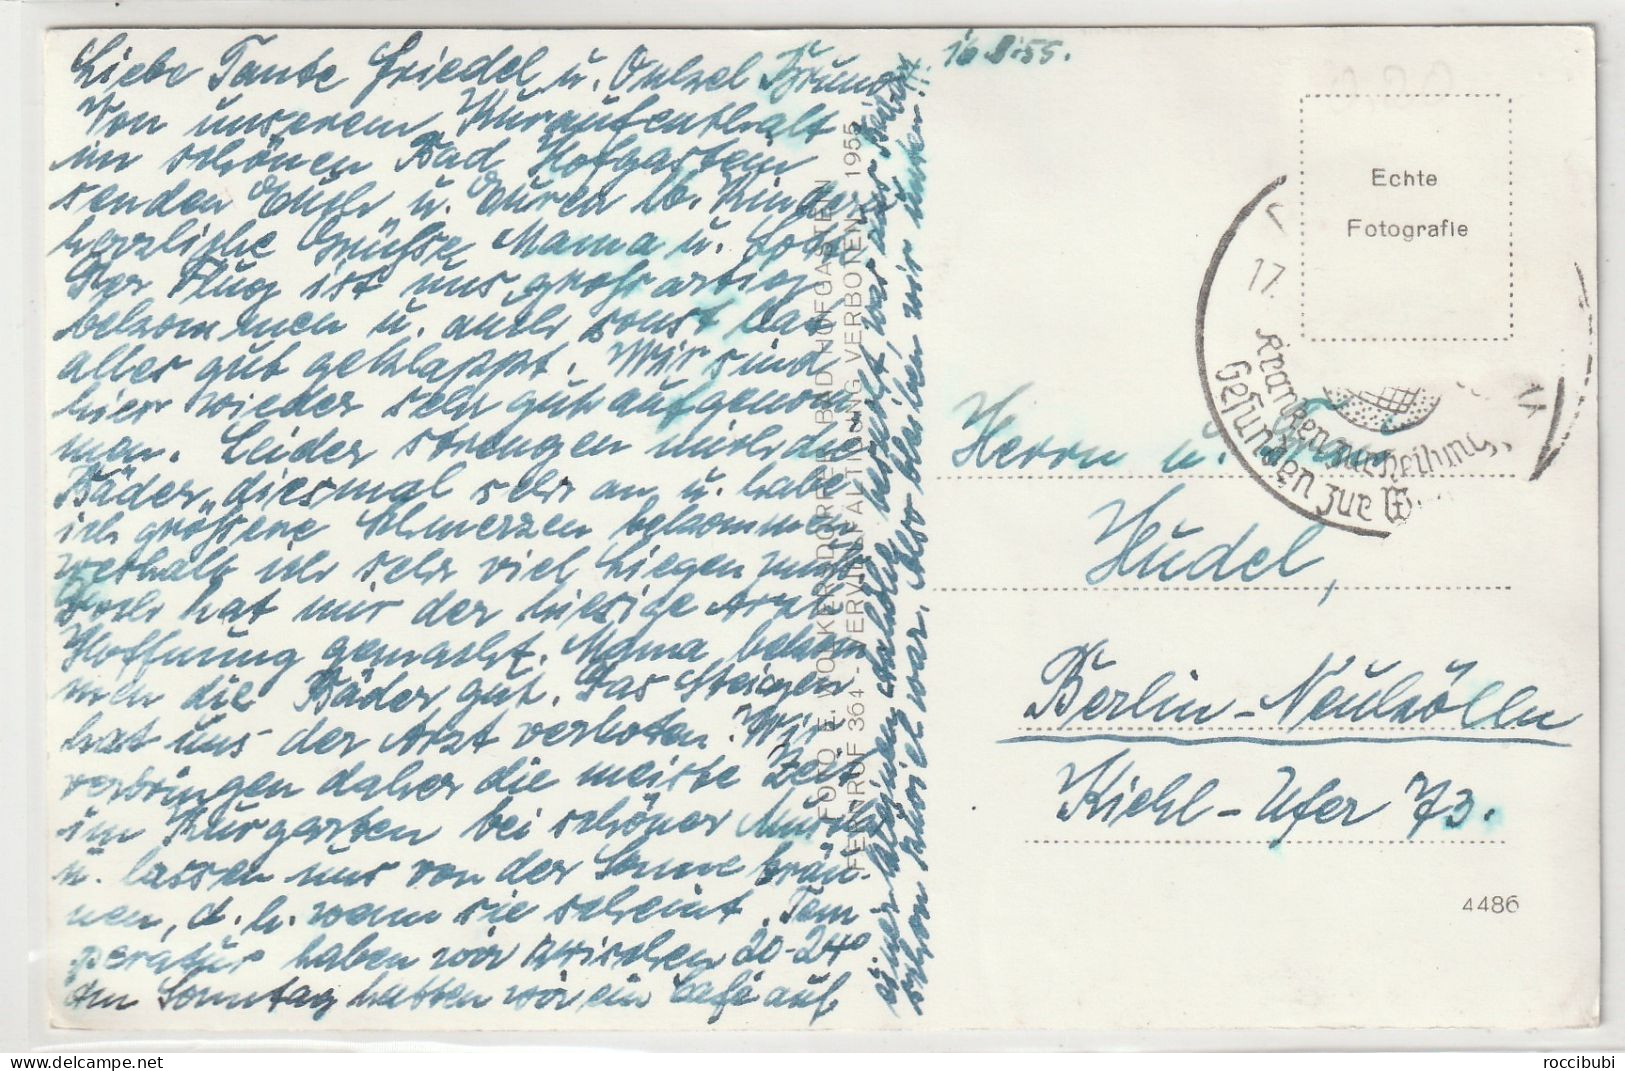 16.8.55.
Liebe Tante Friedel u. Onkel Bruno!
Von unserem Kuraufenthalt
im schönen Bad Hofgastein
senden Euch u. Euren lb. Kinder
herzliche Grüße, Mama u.
Der Flug ist uns großartig
bekommen u. auch sonst hat
alles gut geklappt. Wir sind
hier wieder sehr gut aufgenom
men. Leider strengen mich die
Bäder diesmal sehr an u. habe
ich größere Schmerzen bekommen
weshalb ich sehr viel liegen muß.
Doch hat mir der hiesige Arzt
Hoffnung gemacht. Mama bekom
men die Bäder gut. Das Steigen
hat uns der Arzt verboten. Wir
verbringen daher die meiste Zeit
im Kurgarten bei schöner Musik
u. lassen uns von der Sonne bräu-
nen, d. h. wenn sie scheint. Tem
peratur haben wir zwischen 20-24°
Am Sonntag hatten wir ein Café auf
einer kleinen Anhöhe besucht, was aber
schon zuviel war. Also bleiben wir unten.
FOTO E. VOLKERSDORFER, BAD HOFGASTEIN
FERNRUF 364 - VERVIELFÄLTIGUNG VERBOTEN 1955
Echte
Fotografie
17.
Kranken zur Heilung,
Gesunden zur
Herrn u.
Hudel,
Berlin-Neukölln
Kiehl-Ufer 73.
4486
roccibubi